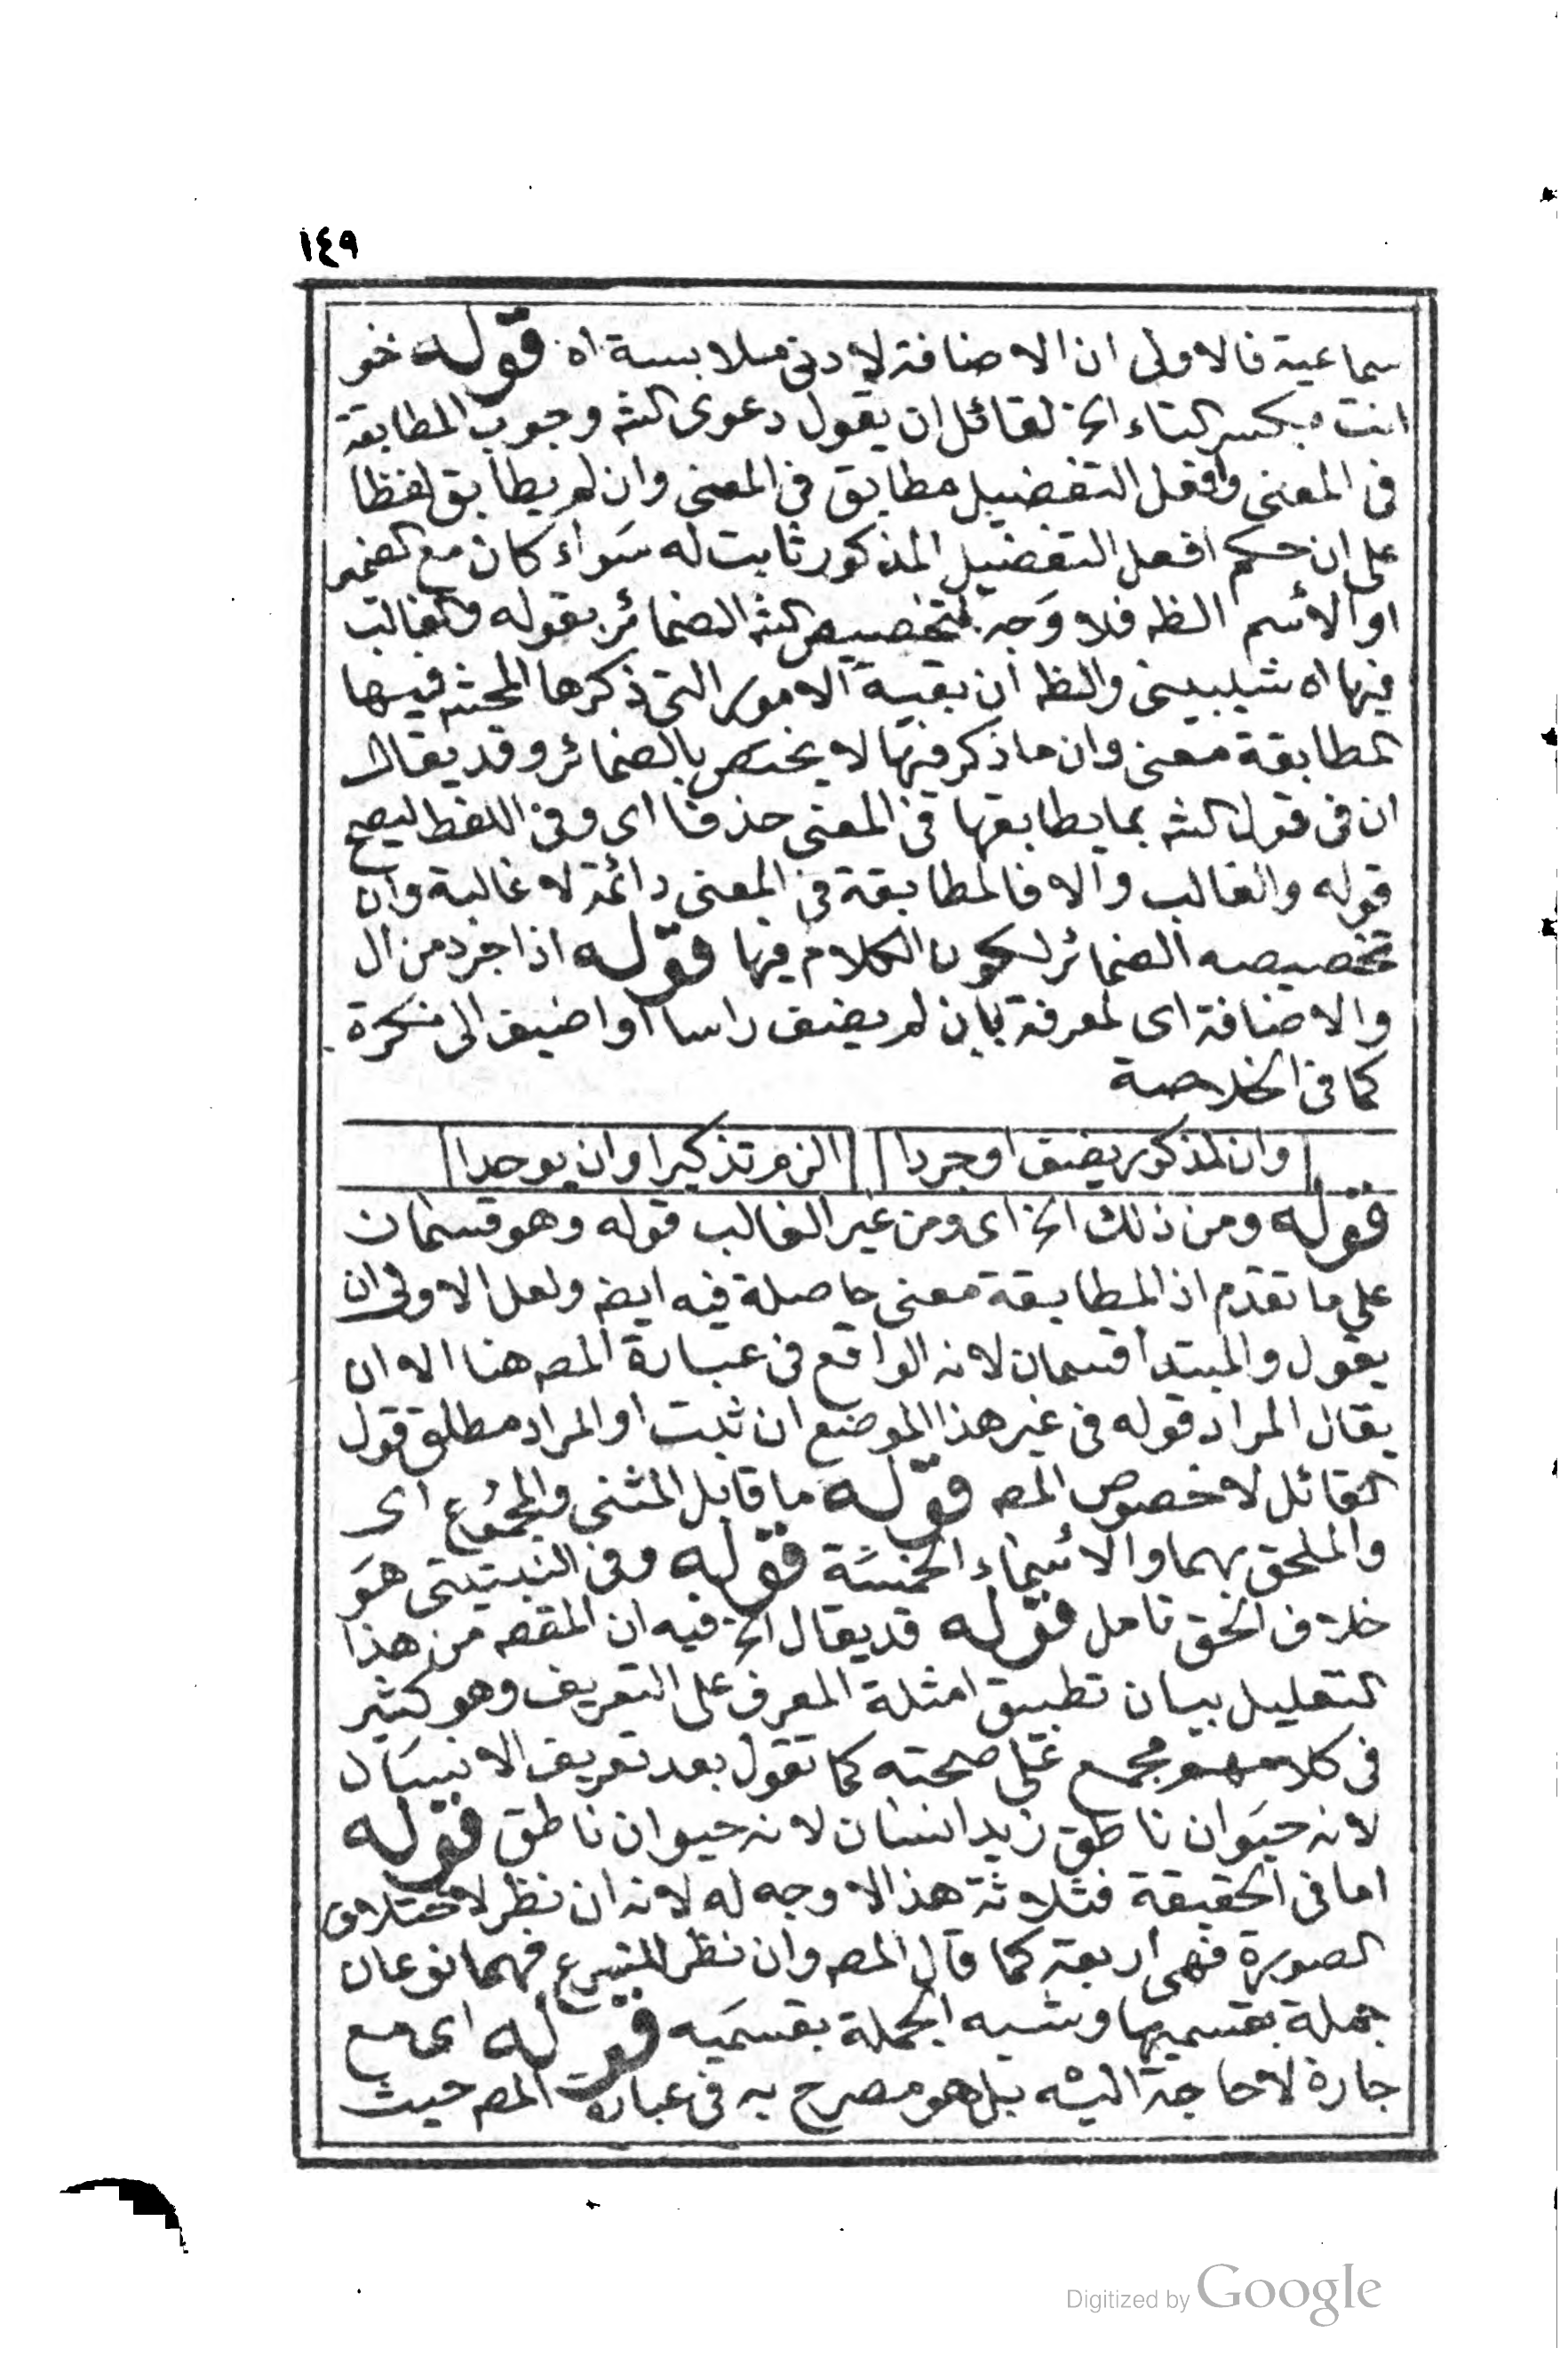 ١٤٩
سماعية فالاولى ان الاضافة لادنى ملابسة اه قوله نحو
انت بكسر التاء الخ لقائل ان يقول دعوى الشه وجوب المطابقة
فى المعنى وافعل التفضيل مطابق فى المعنى وان لم يطابق لفظا
على ان حكم افعل التفضيل المذكور ثابت له سواء كان مع الضمير
او الاسم الظه فلا وجه لتخصيص الشه الضمائر بقوله والغالب
فيها اه شيبينى والظه ان بقية الامور التى ذكرها المحشه فيها
المطابقة معنى وان ما ذكر فيها لا يختص بالضمائر وقد يقال
ان فى قول الشه بما يطابقها فى المعنى حذفا اى وفى اللفظ ليصح
قوله والغالب والا فالمطابقة فى المعنى دائمة لا غالبة وان
تخصيصه الضمائر لكون الكلام فيها قوله اذا جرد من ال
والاضافة اى لمعرفة بان لم يضف راسا او اضيف الى نكرة
كما فى الخلاصة
وان لمذكور يضف او جردا الزم تذكيرا وان يوحدا
قوله ومن ذلك الخ اى ومن غير الغالب قوله وهو قسمان
على ما تقدم اذ المطابقة معنى حاصلة فيه ايضه ولعل الاولى ان
يقول والمبتدأ قسمان لانه الواقع فى عبارة المصه هنا الا ان
يقال المراد قوله فى غير هذا الموضع ان ثبت او المراد مطلق قول
القائل لا خصوص المصه قوله ما قابل المثنى والمجموع اى
والملحق بهما والاسماء الخمسة قوله وفى النبتيتى هو
خلاف الحق تامل قوله قد يقال الخ فيه ان المقصه من هذا
التعليل بيان تطبيق امثلة المعرف على التعريف وهو كثير
فى كلامهم مجمع على صحته كما تقول بعد تعريف الانسان
لانه حيوان ناطق زيد انسان لانه حيوان ناطق قوله
اما فى الحقيقة فثلاثة هذا لا وجه له لانه ان نظر لاختلاف
الصورة فهى اربعة كما قال المصه وان نظر للنوع فهما نوعان
جملة بقسميها وشبه الجملة بقسميه قوله اى مع
جارة لا حاجة اليه بل هو مصرح به فى عبارة المصه حيث
Digitized by Google